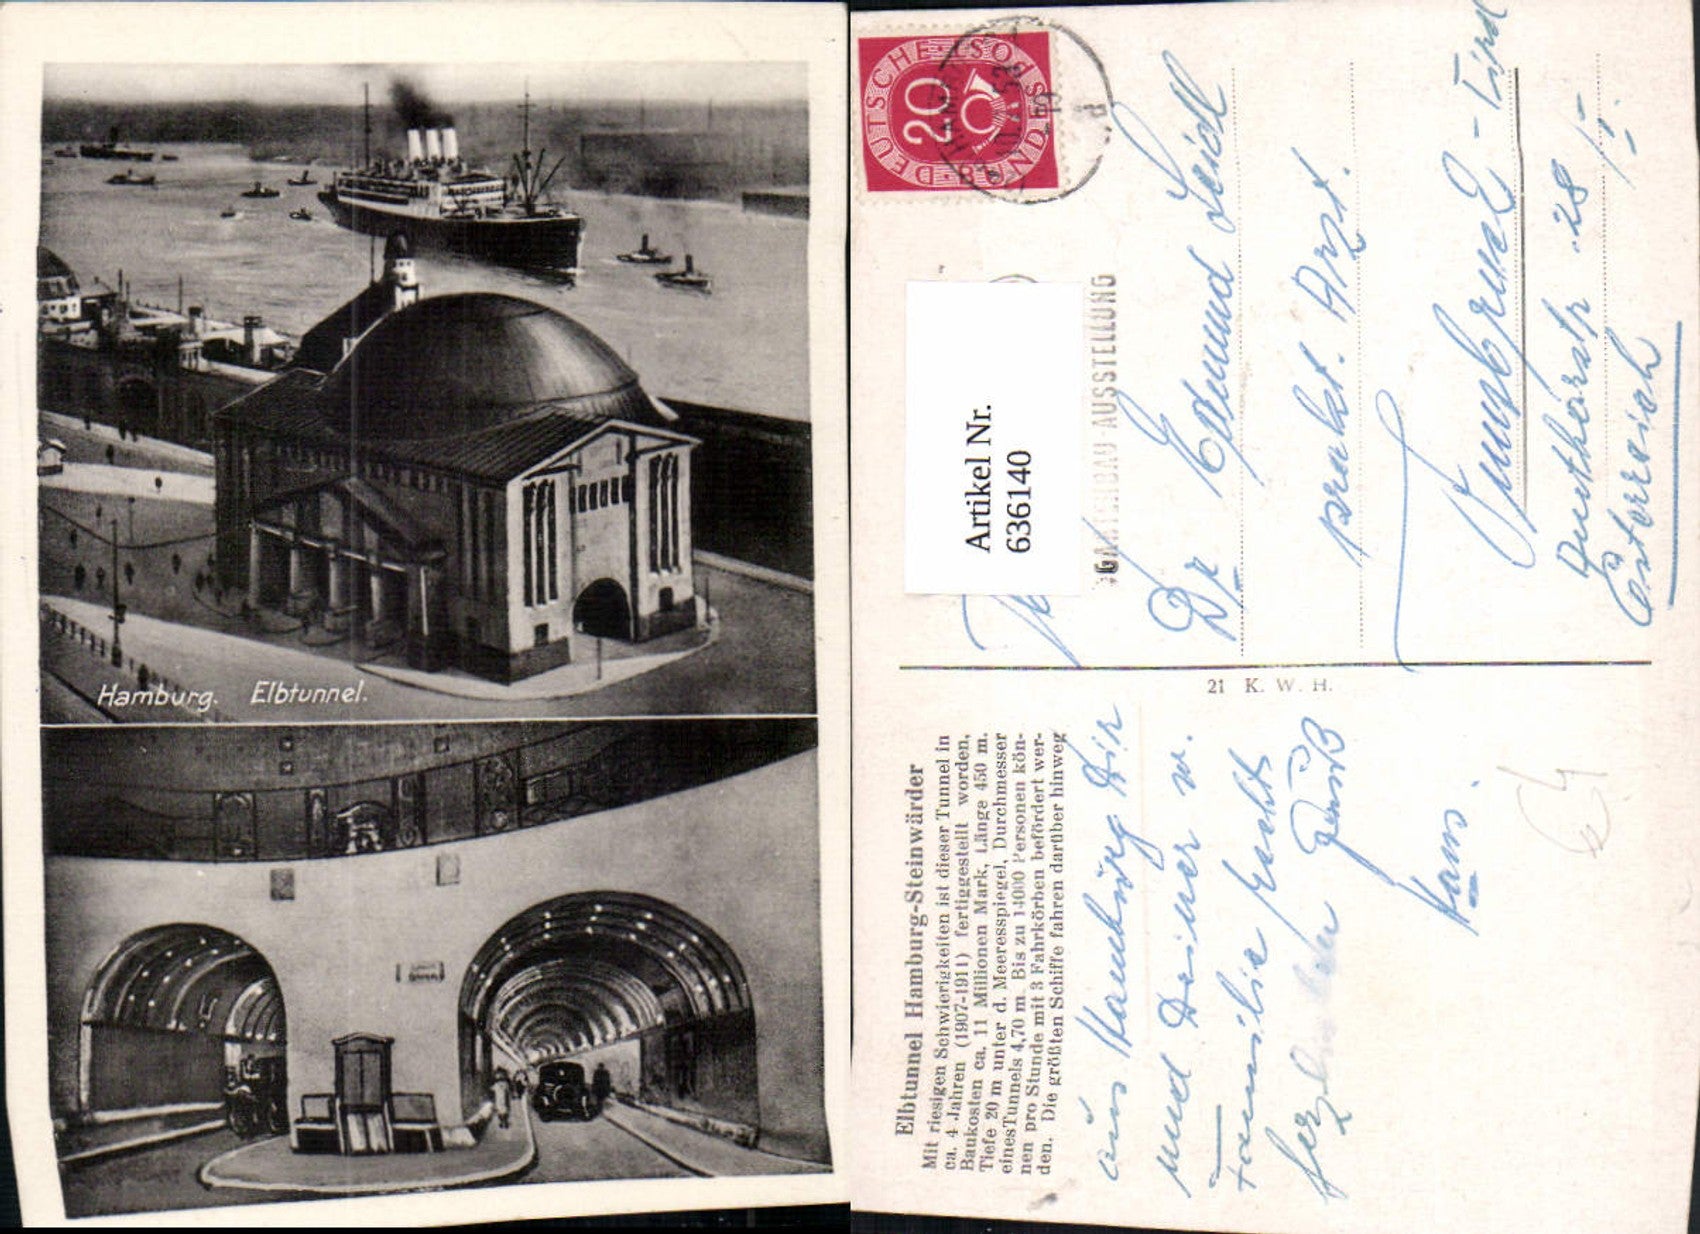 Hamburg. Elbtunnel.
DEUTSCHE BUNDESPOST
20
HAMBURG
GARTENBAU-AUSSTELLUNG
Artikel Nr.
636140
Dr Edmund Seidl
prakt. Arzt.
Österreich
21 K. W. H.
Elbtunnel Hamburg-Steinwärder
Mit riesigen Schwierigkeiten ist dieser Tunnel in
ca. 4 Jahren (1907-1911) fertiggestellt worden,
Baukosten ca. 11 Millionen Mark, Länge 450 m.
Tiefe 20 m unter d. Meeresspiegel, Durchmesser
eines Tunnels 4,70 m. Bis zu 14000 Personen kön-
nen pro Stunde mit 3 Fahrkörben befördert wer-
den. Die größten Schiffe fahren darüber hinweg
aus Hamburg Dir
und Deiner w.
Familie recht
herzlichen Gruß
Hans.